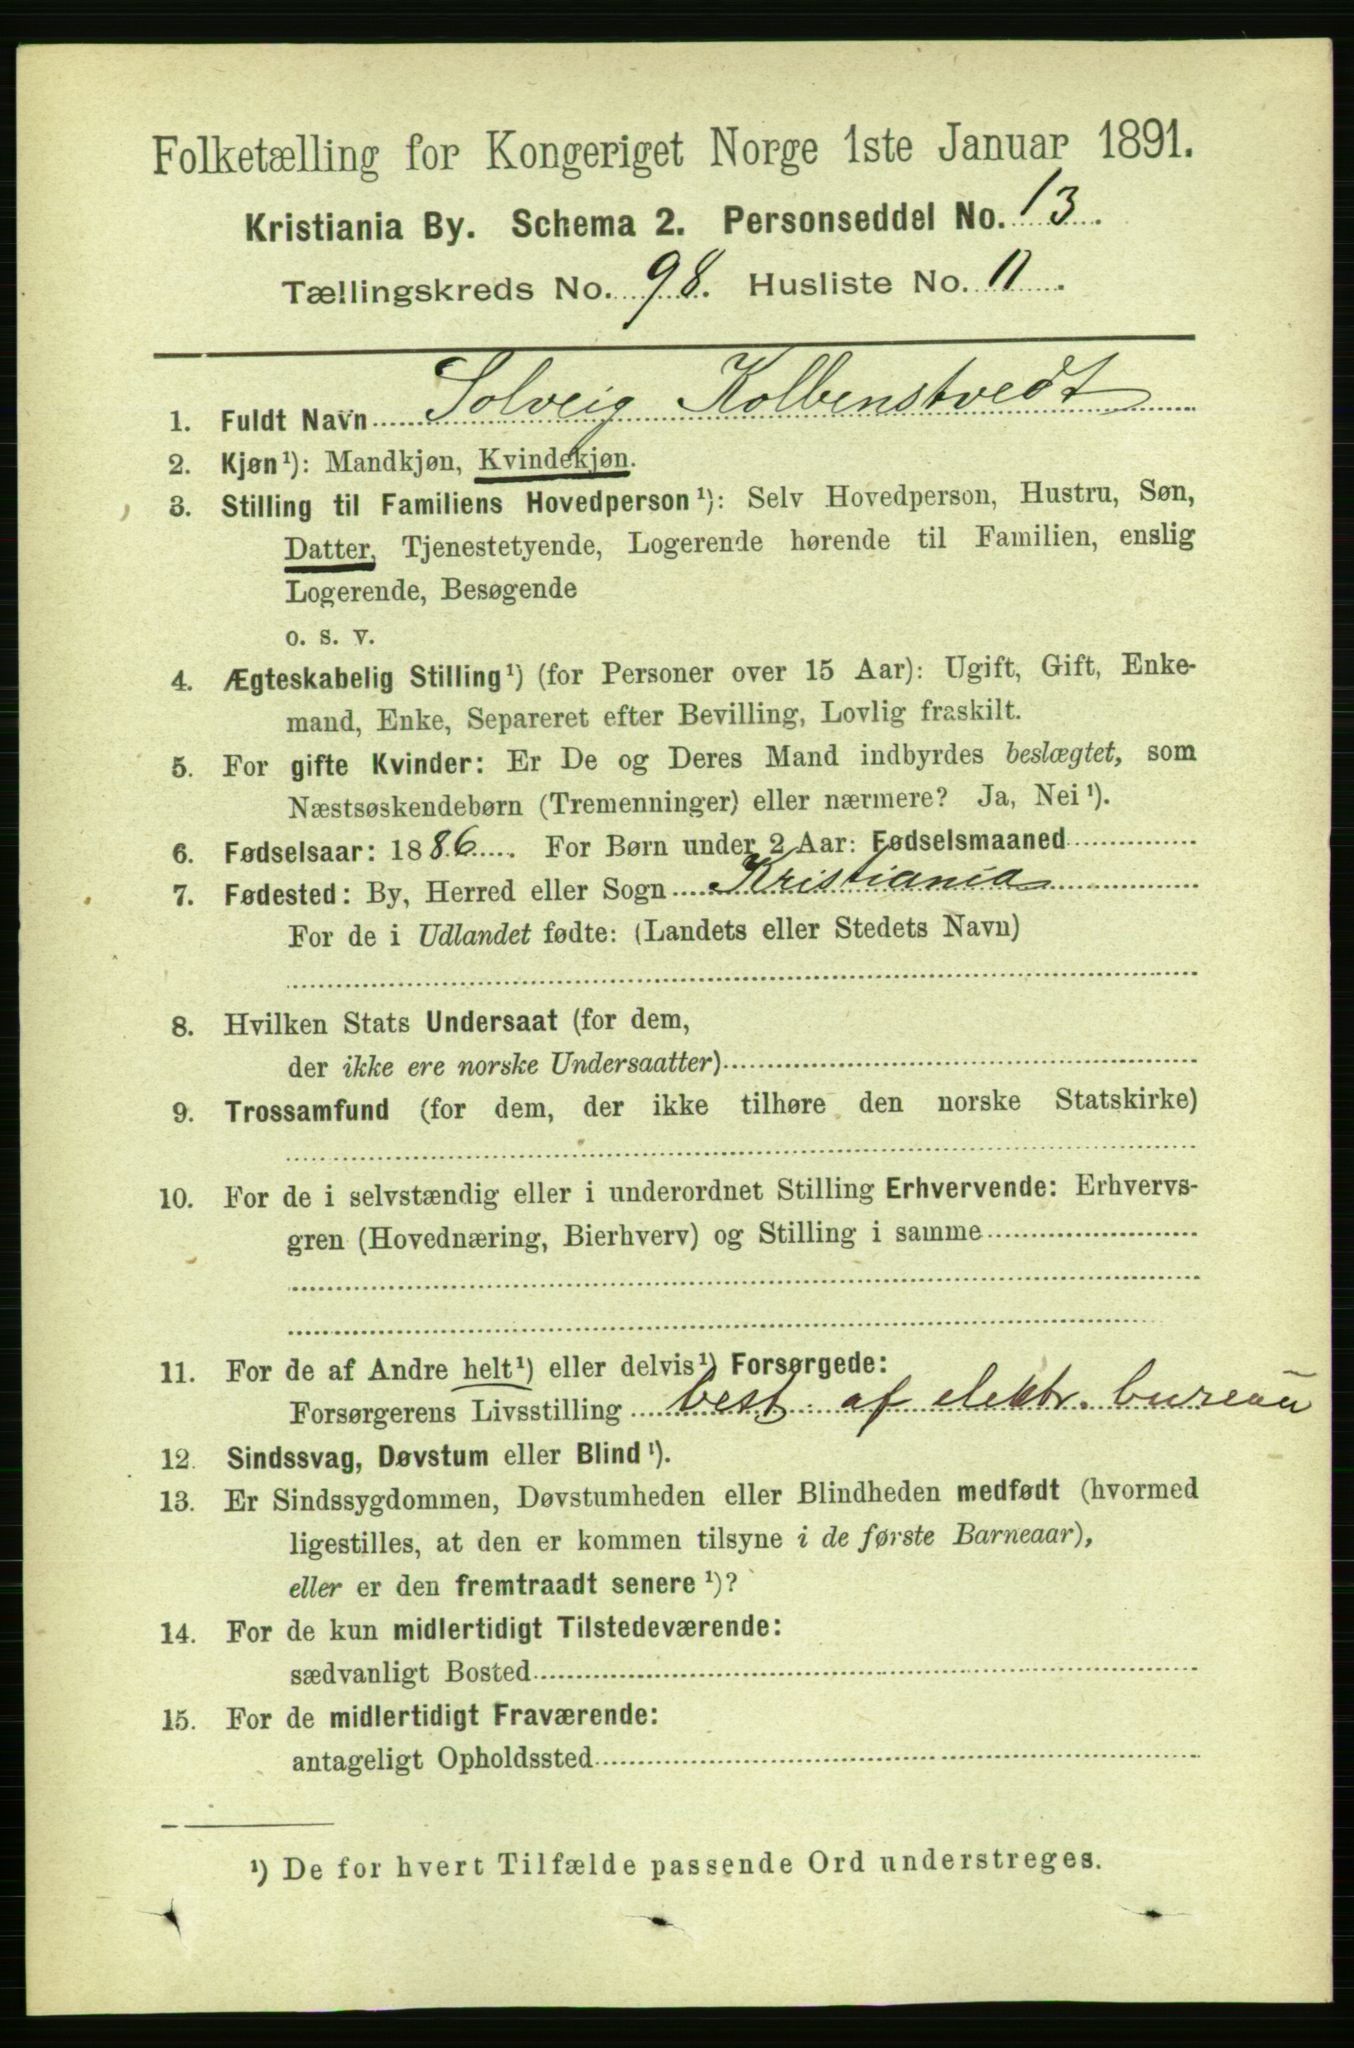 Folketælling for Kongeriget Norge 1ste Januar 1891.
Kristiania By. Schema 2. Personseddel No. 13.
Tællingskreds No. 98. Husliste No. 11.
1. Fuldt Navn Solveig Kolbenstvedt
2. Kjøn¹): Mandkjøn, Kvindekjøn.
3. Stilling til Familiens Hovedperson¹): Selv Hovedperson, Hustru, Søn,
Datter, Tjenestetyende, Logerende hørende til Familien, enslig
Logerende, Besøgende
o. s. v.
4. Ægteskabelig Stilling¹) (for Personer over 15 Aar): Ugift, Gift, Enke-
mand, Enke, Separeret efter Bevilling, Lovlig fraskilt.
5. For gifte Kvinder: Er De og Deres Mand indbyrdes beslægtet, som
Næstsøskendebørn (Tremenninger) eller nærmere? Ja, Nei¹).
6. Fødselsaar: 1886. For Børn under 2 Aar: Fødselsmaaned
7. Fødested: By, Herred eller Sogn Kristiania
For de i Udlandet fødte: (Landets eller Stedets Navn)
8. Hvilken Stats Undersaat (for dem,
der ikke ere norske Undersaatter)
9. Trossamfund (for dem, der ikke tilhøre den norske Statskirke)
10. For de i selvstændig eller i underordnet Stilling Erhvervende: Erhvervs-
gren (Hovednæring, Bierhverv) og Stilling i samme
11. For de af Andre helt¹) eller delvis¹) Forsørgede:
Forsørgerens Livsstilling best. af elektr. bureau
12. Sindssvag, Døvstum eller Blind¹).
13. Er Sindssygdommen, Døvstumheden eller Blindheden medfødt (hvormed
ligestilles, at den er kommen tilsyne i de første Barneaar),
eller er den fremtraadt senere¹)?
14. For de kun midlertidigt Tilstedeværende:
sædvanligt Bosted
15. For de midlertidigt Fraværende:
antageligt Opholdssted
¹) De for hvert Tilfælde passende Ord understreges.